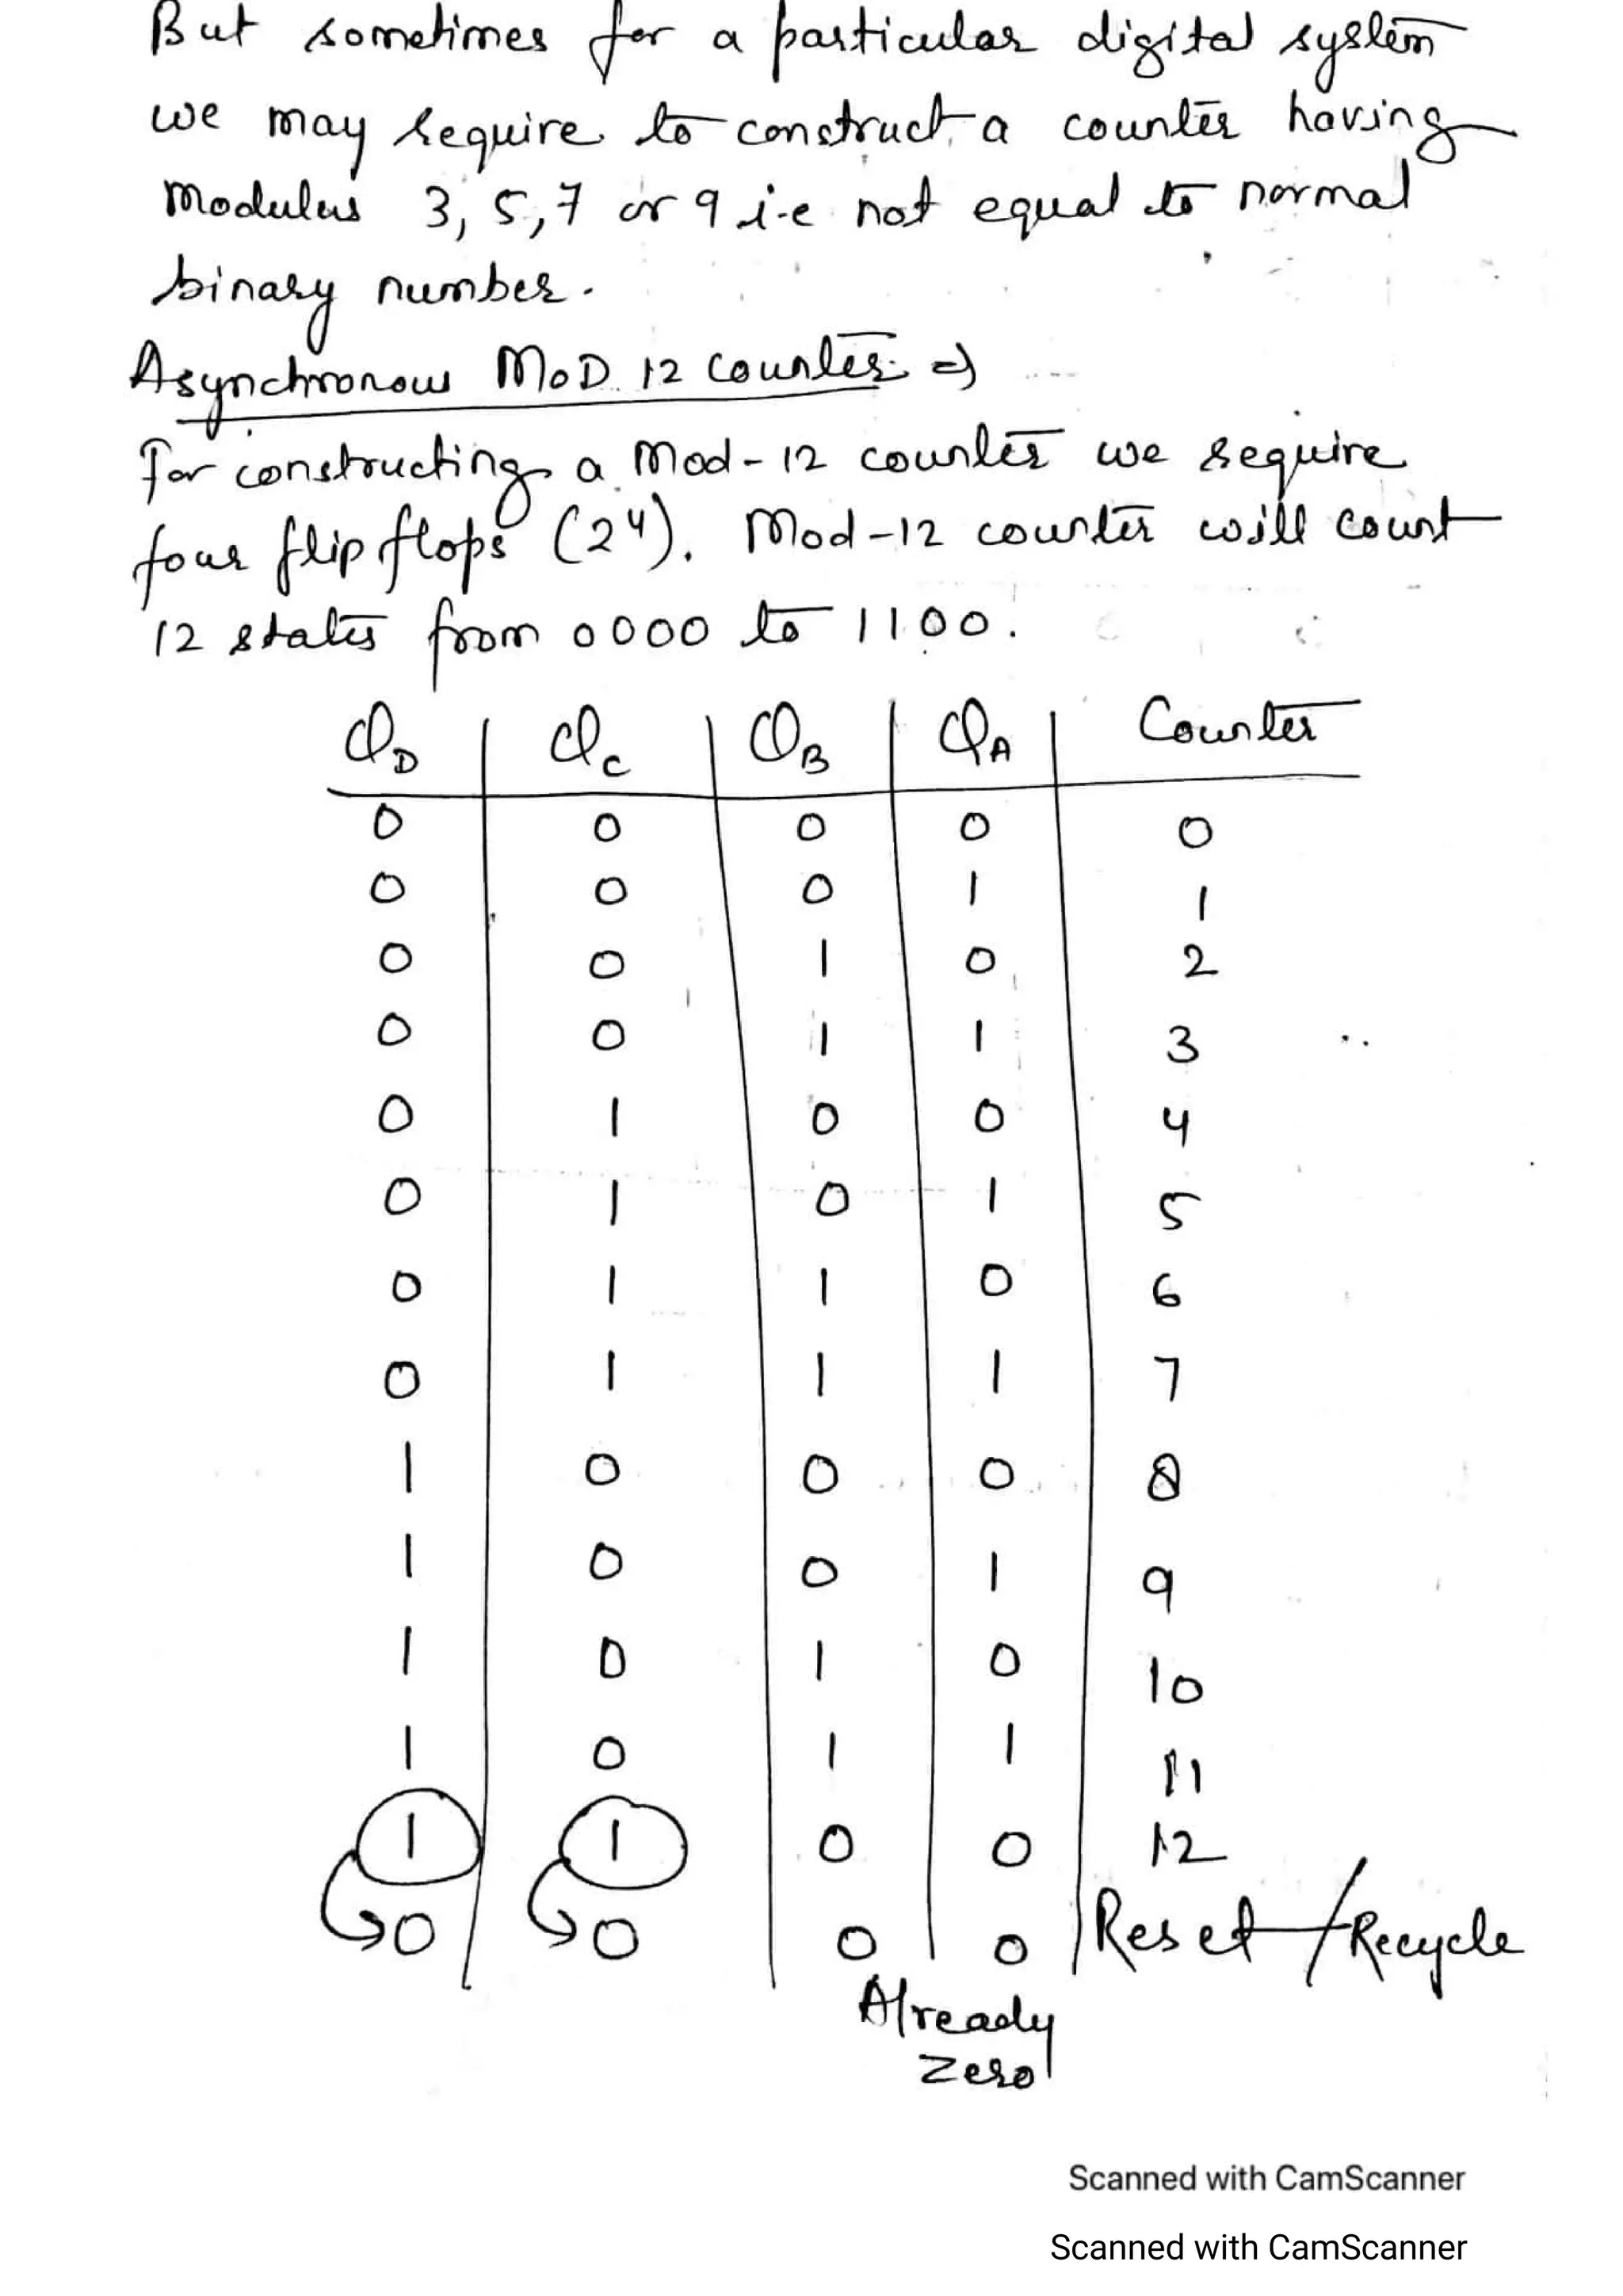 But sometimes for a particular digital system
we may require to construct a counter having
Modulus 3, 5, 7 or 9 i.e not equal to normal
binary number.
Asynchronous MOD 12 counter ⇒
For constructing a Mod-12 counter we require
four flip flops (2⁴). Mod-12 counter will count
12 states from 0000 to 1100.
Q_D Q_C Q_B Q_A Counter
0 0 0 0 0
0 0 0 1 1
0 0 1 0 2
0 0 1 1 3
0 1 0 0 4
0 1 0 1 5
0 1 1 0 6
0 1 1 1 7
1 0 0 0 8
1 0 0 1 9
1 0 1 0 10
1 0 1 1 11
1 1 0 0 12
0 0 0 0 Reset/Recycle
Already
zero
Scanned with CamScanner
Scanned with CamScanner